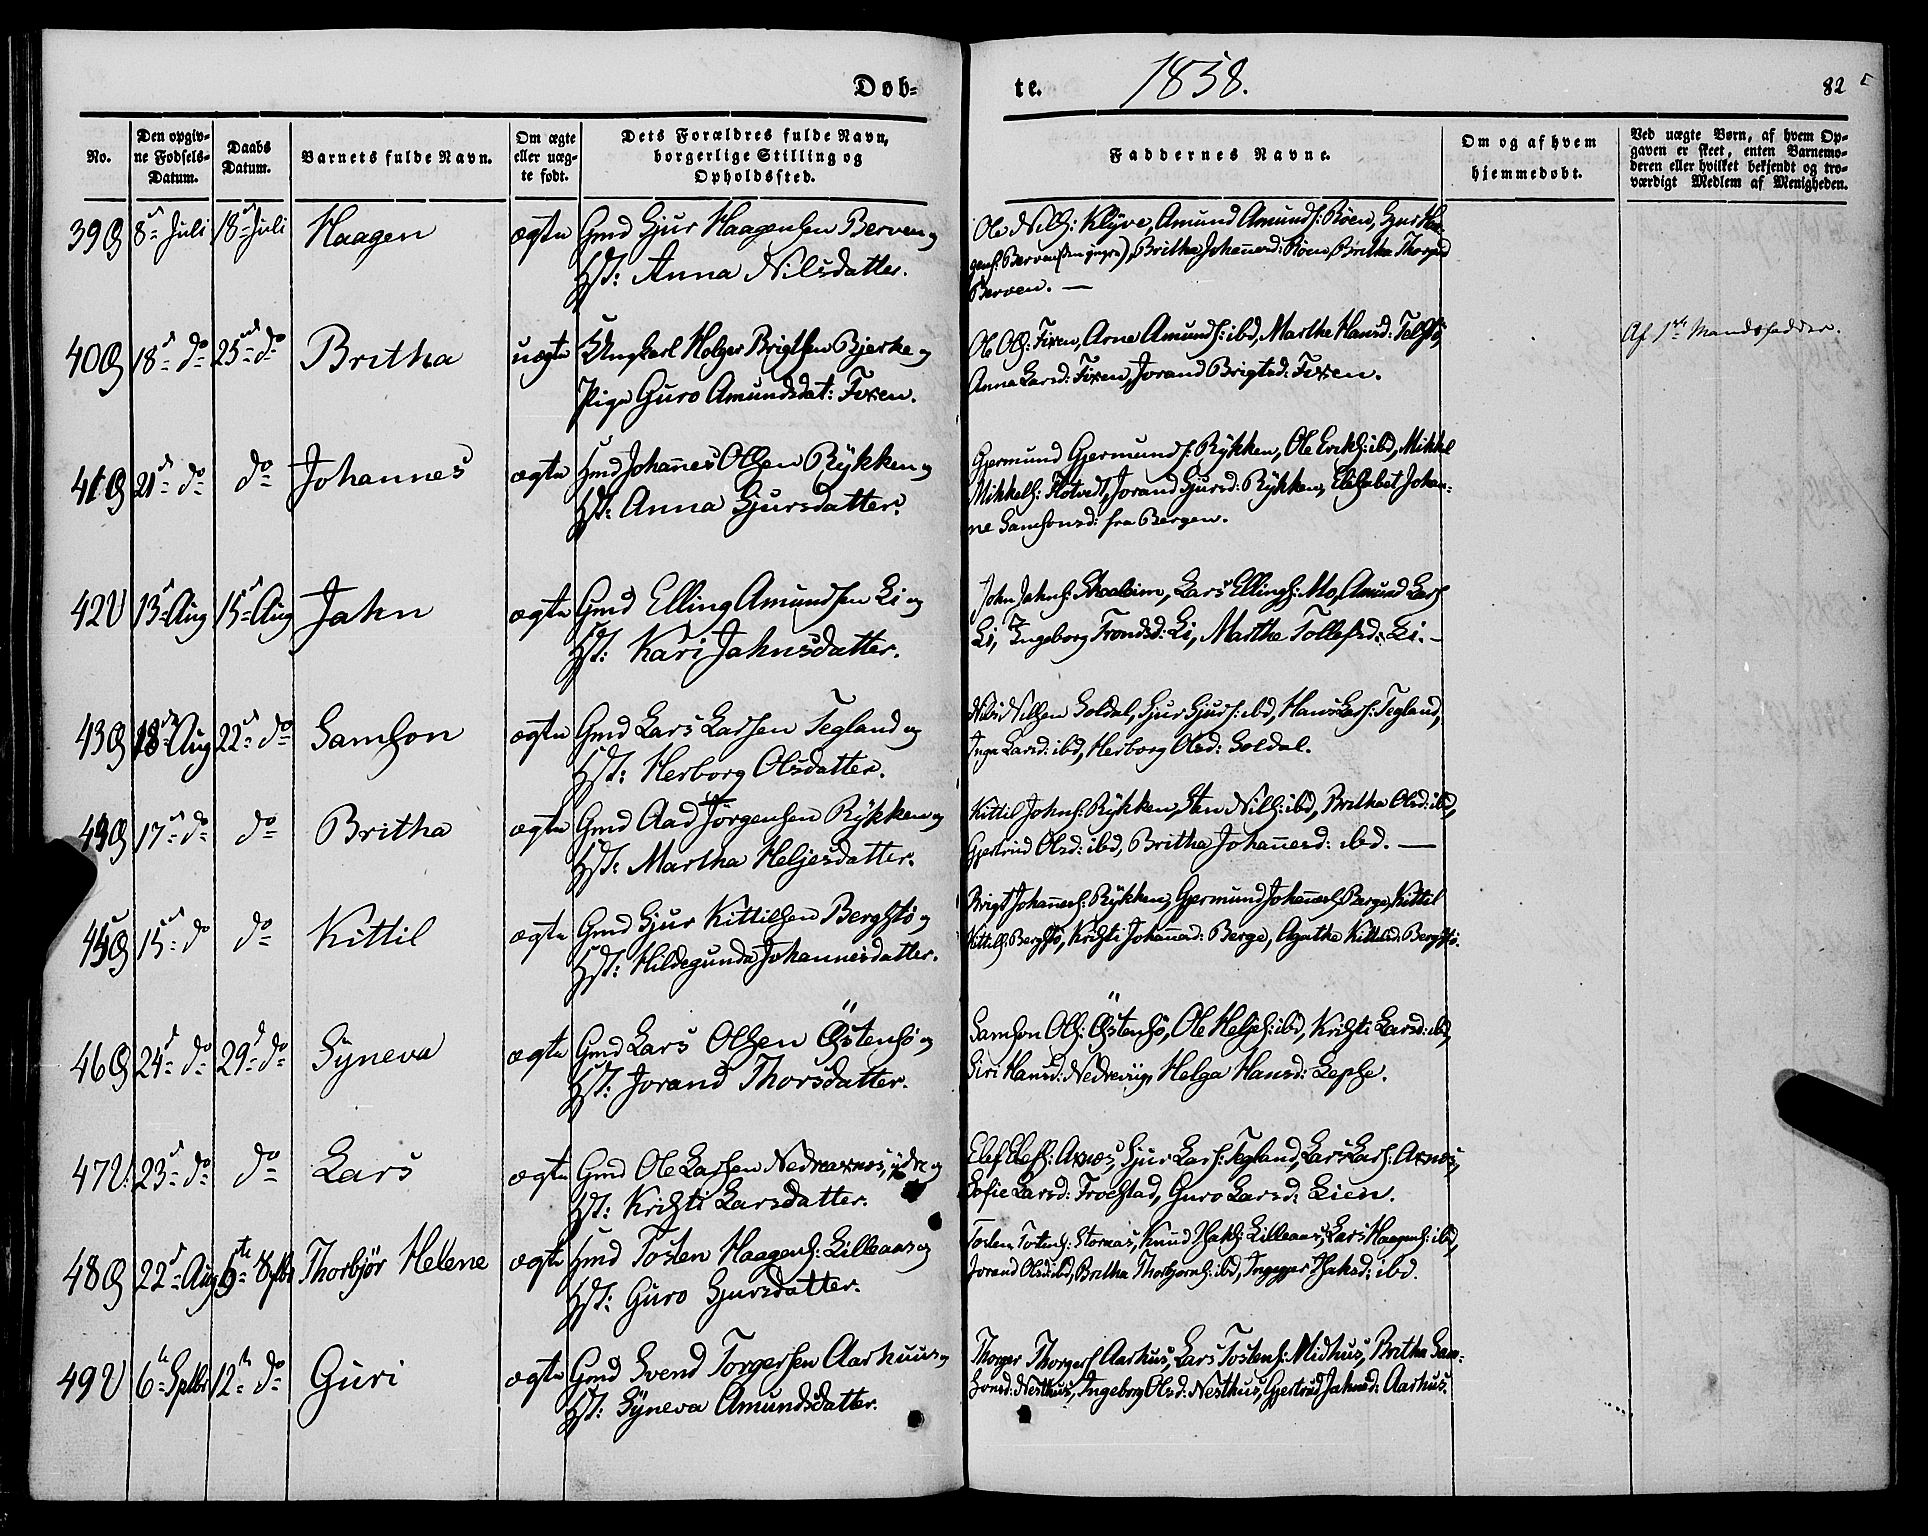 Døb-
te. 1858.
82
No.
Den opgiv-
ne Fødsels-
Datum.
Daabs
Datum.
Barnets fulde Navn.
Om ægte
eller uæg-
te født.
Dets Forældres fulde Navn,
borgerlige Stilling og
Opholdssted.
Faddernes Navne.
Om og af hvem
hjemmedøbt.
Ved uægte Børn, af hvem Op-
gaven er skeet, enten Barnemo-
deren eller hvilket bekjendt og tro-
værdigt Medlem af Menigheden.
39 8de Juli 18de Juli Haagen ægte Gmd Sjur Haagensen Berven og
Hst: Anna Nilsdatter.
Ole Nils: Klyve, Amund Amunds: Røen, Sjur Haa-
gens: Berven (den yngre), Britha Johannesd: Røen, Britha
Berven. —
40 18de do 25de do Britha uægte Ungkarl Holger Brigtsen Bjerke og
Pige Guro Amundsdat: Fixen.
Ole Ols: Fixen, Arne Amunds: ibd, Marthe Hansd:
Anna Larsd: Fixen, Jorand Brigtsd: Fixen.
Af 1ste Mandsfadder.
41 21de do do Johannes ægte Hmd Johannes Olsen Rykken og
Hst: Anna Sjursdatter.
Gjermund Gjermunds: Rykken, Ole Eriks: ibd, Mikkel
Mikkels: Flotvedt, Jorand Sjursd: Rykken, Elisabet Johan-
ne Samsonsd: fra Bergen.
42 13de Aug 15de Aug Jahn ægte Gmd Elling Amundsen Li og
Hst: Kari Jahnsdatter.
John Jahns: Skaaleim, Lars Ellings: Mo, Amund Lars
Li, Ingeborg Trondsd: Li, Marthe Tollefsd: Li. —
43 18de Aug 22de do Samson ægte Gmd Lars Larsen Tegland og
Hst: Herborg Olsdatter.
Nils Nilsen Soldal, Sjur Sjurs: ibd, Hans Lars: Tegland,
Inga Larsd: ibd, Herborg Olsd: Soldal.
44 17de do do Britha ægte Gmd Aad Jørgensen Rykken og
Hst: Martha Heljesdatter.
Kittil Johns: Rykken, Sten Nils: ibd, Britha Olsd: ibd,
Gjertrud Olsd: ibd, Britha Johannesd: ibd. —
45 15de do do Kittil ægte Gmd Sjur Kittilsen Bergstø og
Hst: Hildegunda Johannesdatter.
Brigt Johannes: Rykken, Gjermund Johannes: Berge, Kittil
Kittils: Bergstø, Kristi Johannesd: Berge, Agatha Kittilsd: Bergstø.
46 24de do 29de do Syneva ægte Gmd Lars Olsen Østensø og
Hst: Jorand Thorsdatter.
Samson Ols: Østensø, Ole Heljes: ibd, Kristi Larsd: ibd,
Siri Hansd: Nedrevig, Helga Hansd: Lepse.
47 23de do do Lars ægte Gmd Ole Larsen Nedreaxnes, ydre og
Hst: Kristi Larsdatter.
Elef Elefs: Axnes, Sjur Lars: Tegland, Lars Lars: Axnes,
Sofie Larsd: Froestad, Guro Larsd: Lien.
48 22de Aug 5te Septbr Thorbjør Helene ægte Hmd Tosten Haagens: Lilleaas og
Hst: Guro Sjursdatter.
Tosten Tostens: Storaas, Knud Lilleaas, Lars Haagens: ibd,
Jorand Olsd: ibd, Britha Thorbjørns: ibd, ibd.
49 6te Sptbr 12te do Guri ægte Gmd Svend Torgersen Aarhuus og
Hst: Syneva Amundsdatter.
Thorger Thorgers: Aarhus, Lars Tostens: Midhus, Britha Sam-
sonsd: Nesthus, Ingeborg Olsd: Nesthus, Gjertrud Jahnsd: Aarhus.